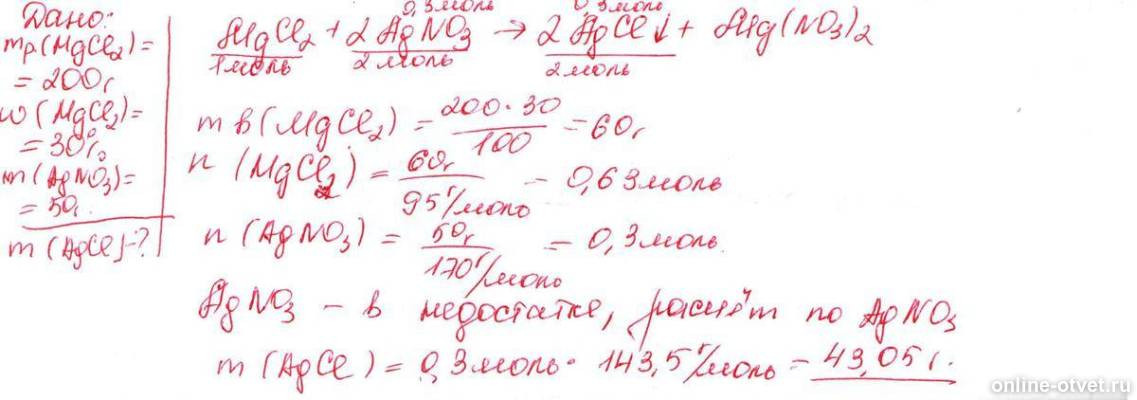 Дано:
mр(MgCl2)=
= 200г
w(MgCl2)=
= 30%
m(AgNO3)=
= 50г.
m(AgCl)-?
0,3моль 0,3моль
MgCl2 + 2AgNO3 → 2AgCl↓ + Mg(NO3)2
1моль 2моль 2моль
m в(MgCl2) = 200·30/100 = 60г
n(MgCl2) = 60г/95г/моль = 0,63моль
n(AgNO3) = 50г/170г/моль = 0,3моль.
AgNO3 – в недостатке, расчёт по AgNO3
m(AgCl) = 0,3моль · 143,5г/моль = 43,05г.
online-otvet.ru